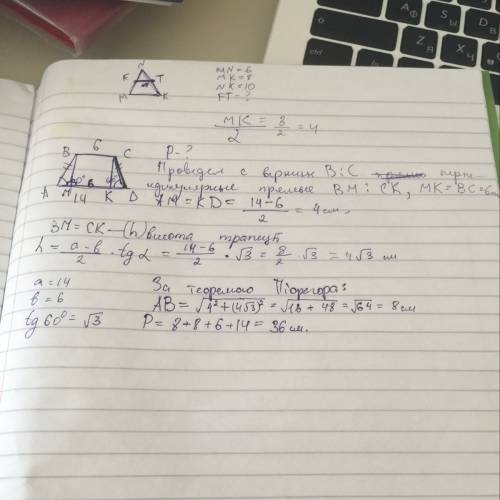 N
F T
M K
MN=6
MK=8
NK=10
FT-?
MK/2 = 8/2 = 4
6
B C
60°
A M 14 K D
P-?
Провидем с вершин B i C
BM i CK, MK=BC=6см
AM = KD = (14-6)/2 = 4см.
BM = CK - (h) висота трапеції
h = (a-b)/2 · tg α = (14-6)/2 · √3 = 8/2 · √3 = 4√3 см
a=14
b=6
tg 60° = √3
За теоремою Піфагора:
AB = √(4²+(4√3)²) = √(16+48) = √64 = 8 см
P = 8+8+6+14 = 36 см.